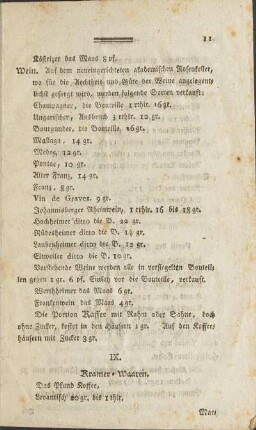 11.
Köstrizer des Maas 8 pf.
Wein. Auf dem neueingerichteten akademischen Rosenkeller,
wo für die Aechtheit und Güte der Weine angelegent-
lichst gesorgt wird, werden folgende Sorten verkauft:
Champagner, die Bouteille 1 rthlr. 16 gr.
Ungarischer, Ausbruch 1 rthlr. 12 gr.
Bourgunder, die Bouteille, 16 gr.
Mallaga, 14 gr.
Medoc, 12 gr.
Pontac, 10 gr.
Alter Franz, 14 gr.
Franz, 8 gr.
Vin de Graves. 9 gr.
Johannisberger Rheinwein, 1 rthlr. 16 bis 18 gr.
Hochheimer ditto die B. 22 gr.
Rüdesheimer ditto die B. 14 gr.
Laubenheimer ditto die B. 12 gr.
Eltweiler ditto die B. 10 gr.
Vorstehende Weine werden alle in versiegelten Bouteil-
len gegen 1 gr. 6 pf. Einsatz vor die Bouteille, verkauft.
Wertheimer das Maas 6 gr.
Frankenwein das Maas 4 gr.
Die Portion Kaffee mit Rahm oder Sahne, doch
ohne Zucker, kostet in den Häusern 1 gr. Auf den Kaffee-
häusern mit Zucker 3 gr.
IX.
Kramer-Waaren.
Das Pfund Koffee,
Levantisch 20 gr. bis 1 thlr.
Mart